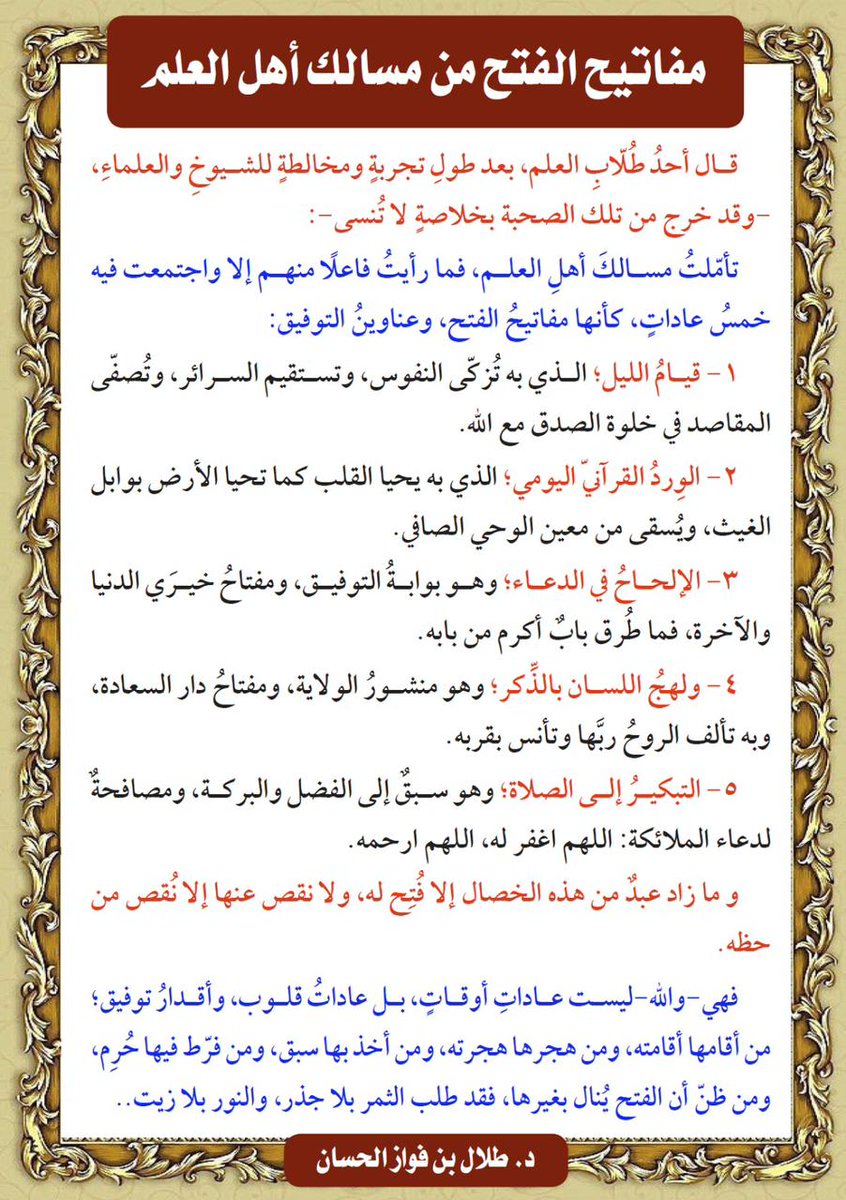 مفاتيح الفتح من مسالك أهل العلم
قال أحدُ طُلّابِ العلم، بعد طولِ تجربةٍ ومخالطةٍ للشيوخِ والعلماءِ،
-وقد خرج من تلك الصحبة بخلاصةٍ لا تُنسى-:
تأمّلتُ مسالكَ أهلِ العلم، فما رأيتُ فاعلًا منهم إلا واجتمعت فيه
خمسُ عاداتٍ، كأنها مفاتيحُ الفتح، وعناوينُ التوفيق:
١- قيامُ الليل؛ الذي به تُزكّى النفوس، وتستقيم السرائر، وتُصفّى
المقاصد في خلوة الصدق مع الله.
٢- الوِردُ القرآنيّ اليومي؛ الذي به يحيا القلب كما تحيا الأرض بوابل
الغيث، ويُسقى من معين الوحي الصافي.
٣- الإلحاحُ في الدعاء؛ وهو بوابةُ التوفيق، ومفتاحُ خيرَي الدنيا
والآخرة، فما طُرق بابٌ أكرم من بابه.
٤- ولهجُ اللسان بالذِّكر؛ وهو منشورُ الولاية، ومفتاحُ دار السعادة،
وبه تألف الروحُ ربَّها وتأنس بقربه.
٥- التبكيرُ إلى الصلاة؛ وهو سبقٌ إلى الفضل والبركة، ومصافحةٌ
لدعاء الملائكة: اللهم اغفر له، اللهم ارحمه.
و ما زاد عبدٌ من هذه الخصال إلا فُتِح له، ولا نقص عنها إلا نُقص من
حظه.
فهي-والله-ليست عاداتِ أوقاتٍ، بل عاداتُ قلوب، وأقدارُ توفيق؛
من أقامها أقامته، ومن هجرها هجرته، ومن أخذ بها سبق، ومن فرّط فيها حُرِم،
ومن ظنّ أن الفتح يُنال بغيرها، فقد طلب الثمر بلا جذر، والنور بلا زيت..
د. طلال بن فواز الحسان